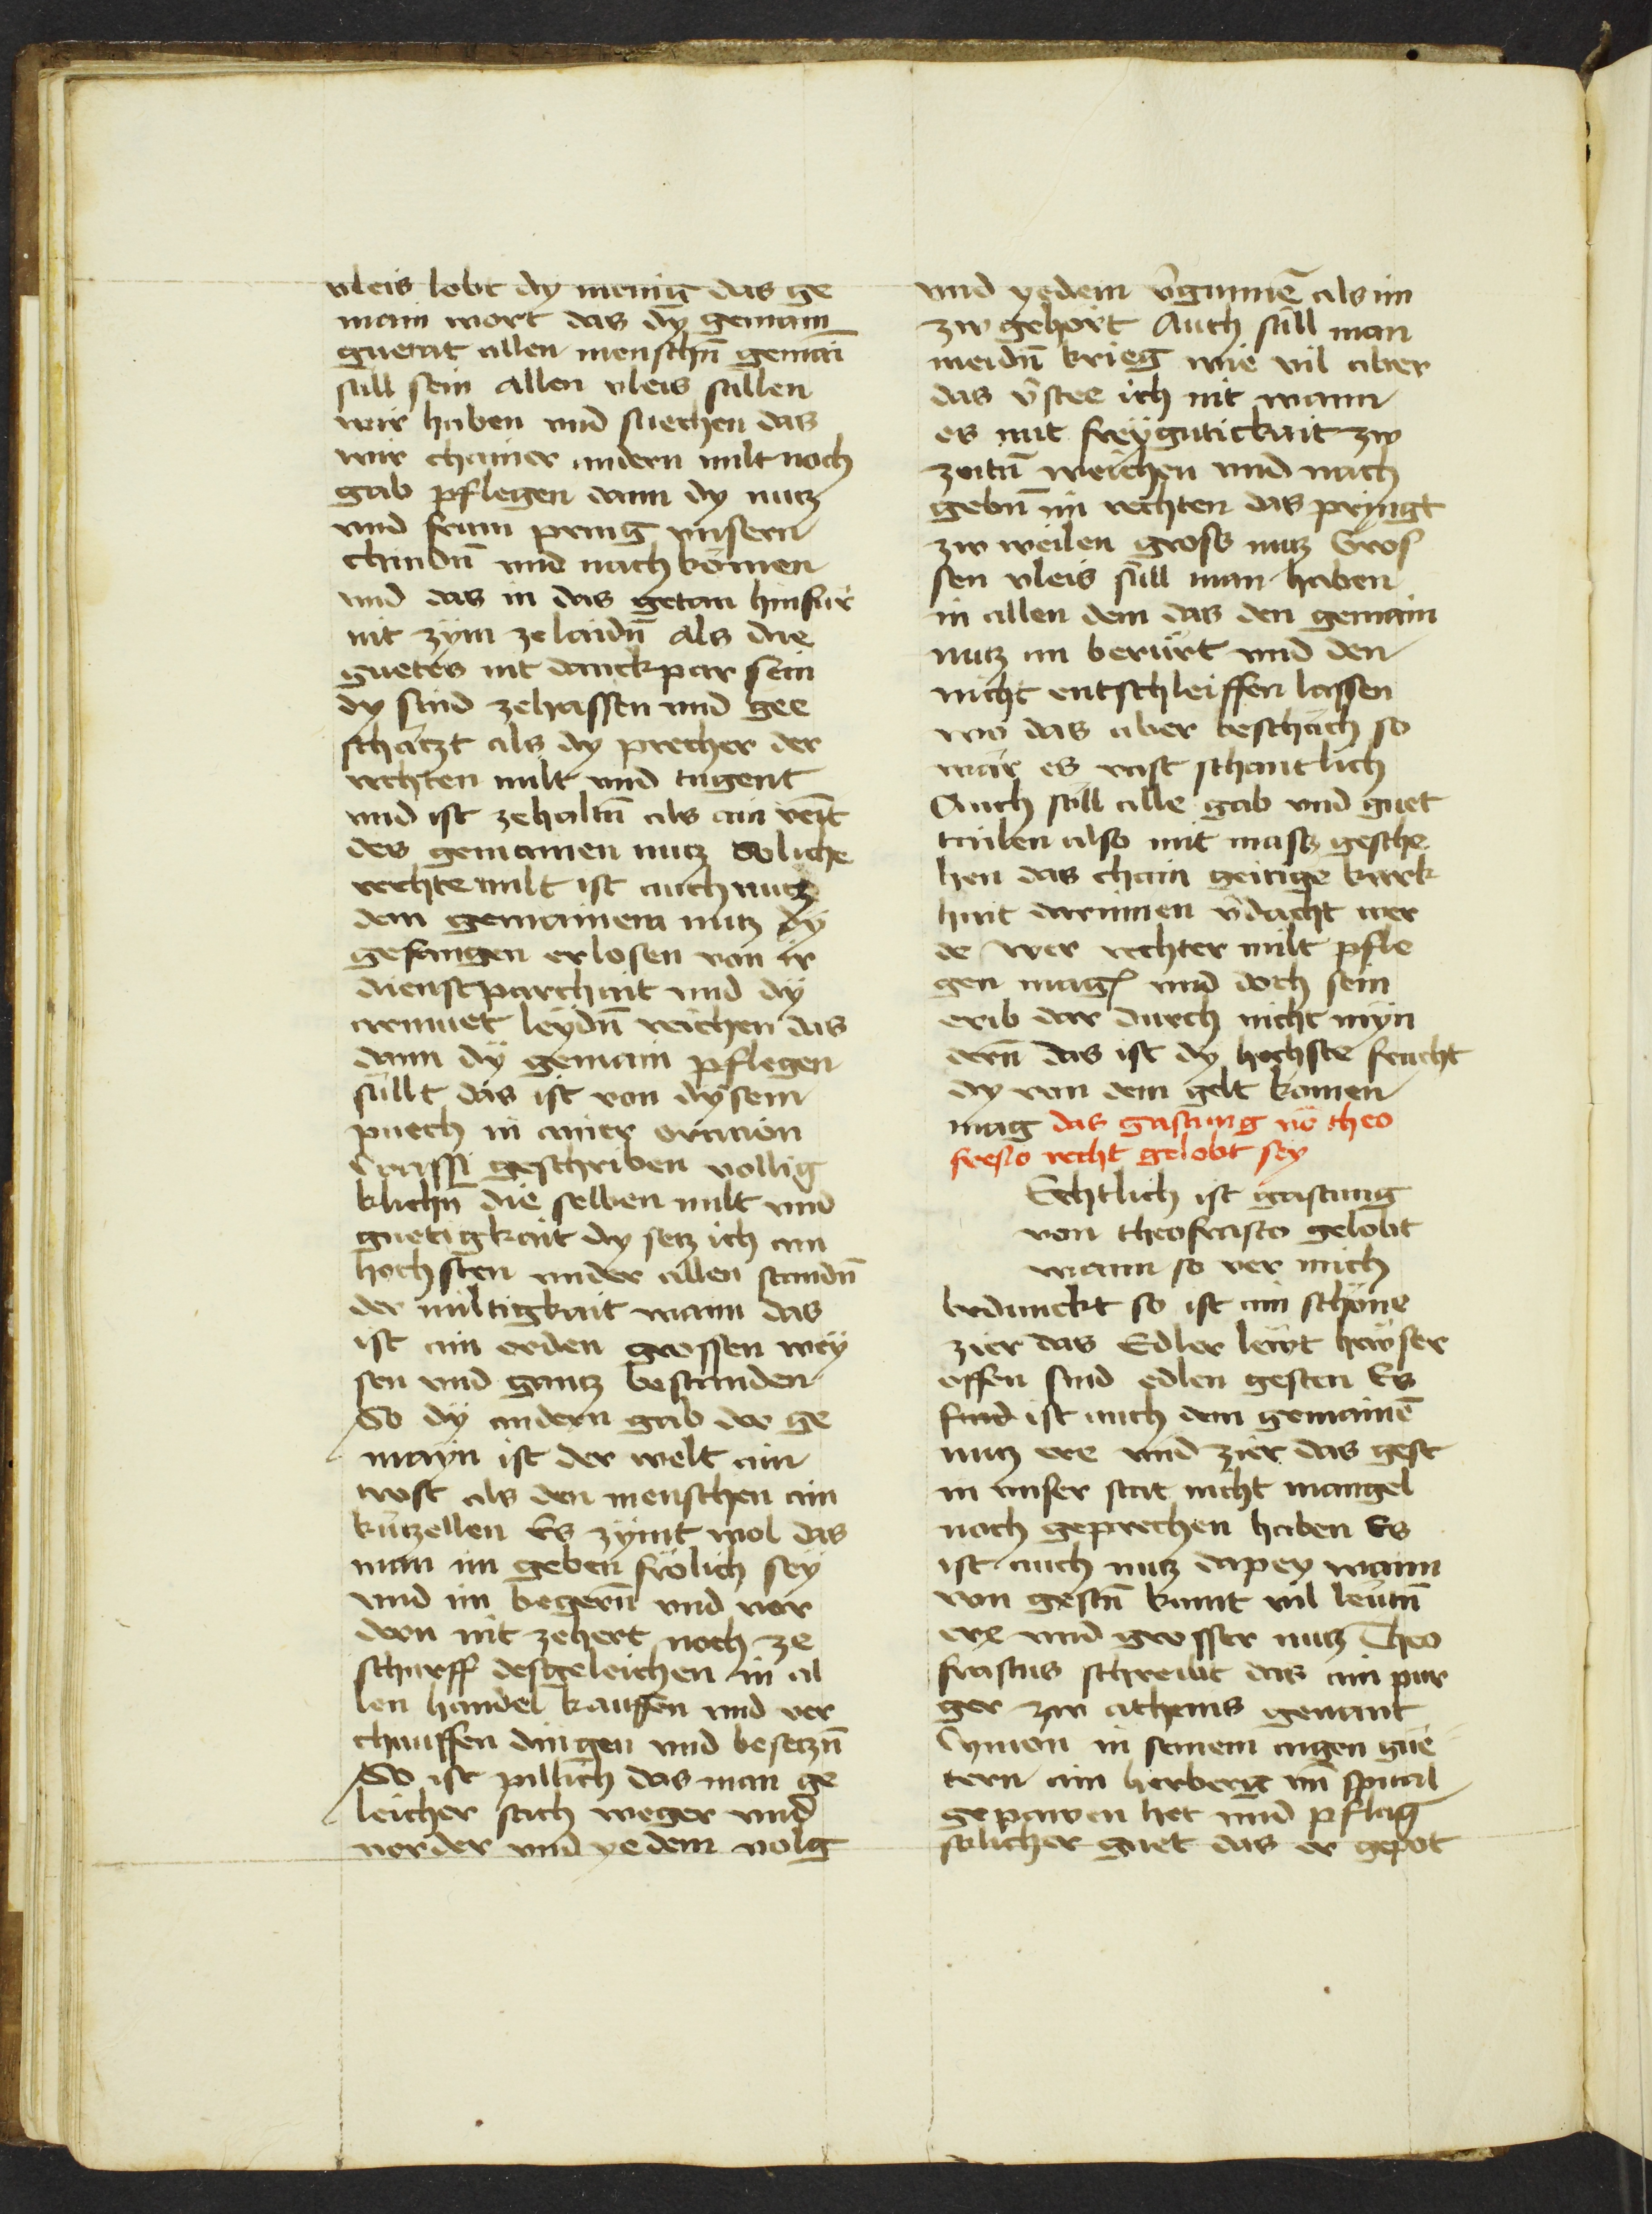 vleis lobt dy menig das ge
main wort das dy gemain
guettat allen menschn̄ gemain
sull sein allen vleis sullen
wir haben vnd suechen das
wir chainer andern milt noch
gab pflegen dann dy nutz
vnd frum pring vnsern
chindn̄ vnd nachkomen
vnd das in das getan hinfür
nit zym zelaidn̄ als die
guetes nit danckpar sein
dy sind zehassen vnd gee
schätzt als dy precher der
rechten milt vnd tugent
vnd ist zehaltn̄ als ain veīt
des gemainen nutz Soliche
rechte milt ist auch nutz
dem gemainem nutz dy
gefangen erlosen von ir
dienstparchait vnd dÿ
armuet leÿdn̄ reichen das
dann dÿ gemain pflegen
sullt das ist von dÿsem
puech in ainer oracion
Crassi geschriben vollig
klichn̄ die selben milt vnd
guetigkait dy setz ich am
hochsten vnder allen standn̄
der miltigkait wann das
ist ain orden grossen wey
sen vnd gantz bestanden
So dÿ andern gab der ge
mayn ist der welt ain
trost als den menschen ain
kutzellen Es zymt wol das
man im geben frölich seÿ
vnd im begern̄ vnd vor
dern nit zehert noch ze
scharff desgeleichen in al
len handel kauffen vnd ver
chauffen dingen vnd besetzn̄
So ist pillich das man ge
leicher sach weger vnd
vorder vnd yedem volg
vnd yedem v̄gunnē als im
zw gehört Auch sull man
meidn̄ krieg wie vil aber
das v̄stee ich nit wann
es mit freÿgutickait zw
zeitn̄ weichen vnd nach
gebn̄ im rechten das pringt
zw weilen gross nutz Gros
sen vleis sull man haben
in allen dem das den gemain
nutz an berürt vnd den
nicht entschleiffen lassen
wo das aber beschäch so
wär es vast schantlich
Auch sull alle gab vnd guet
tailen also mit mass gesche
hen das chain geitige kark
hait darinnen v̄dacht wer
de wer rechter milt pfle
gen mag vnd doch sein
erib dar durch nicht mÿn
dern̄ das ist dy hochste frucht
dy von dem gelt komen
mag das gastung vō theo
frasto recht gelobt sey
Echtlich ist gastung
von theofrasto gelobt
wann so ver mich
bedunckt so ist ain schöne
zier das Edler lewt hewser
offen sind edlen gesten Es
sind ist auch dem gemainē
nutz ere vnd zier das gest
in vnser stat nicht mangel
noch geprechen haben Es
ist auch nutz dapey wann
von gestn̄ kumt vil leutn̄
ere vnd grosser nutz Theo
frastus schreibt das ain pur
ger zw athenis genant
Cymon in seinem aigen gue
tern ain herberg vn̄ spital
gepawen het vnd pflag
solicher guet das er gepot